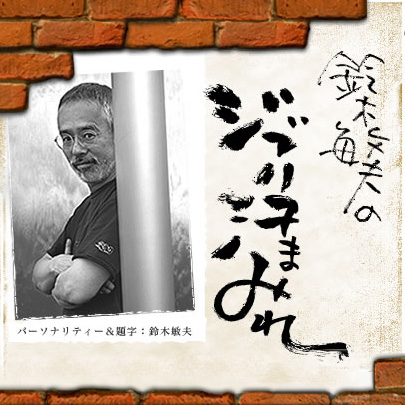 鈴木敏夫の
ジブリ汗まみれ
パーソナリティー＆題字：鈴木敏夫